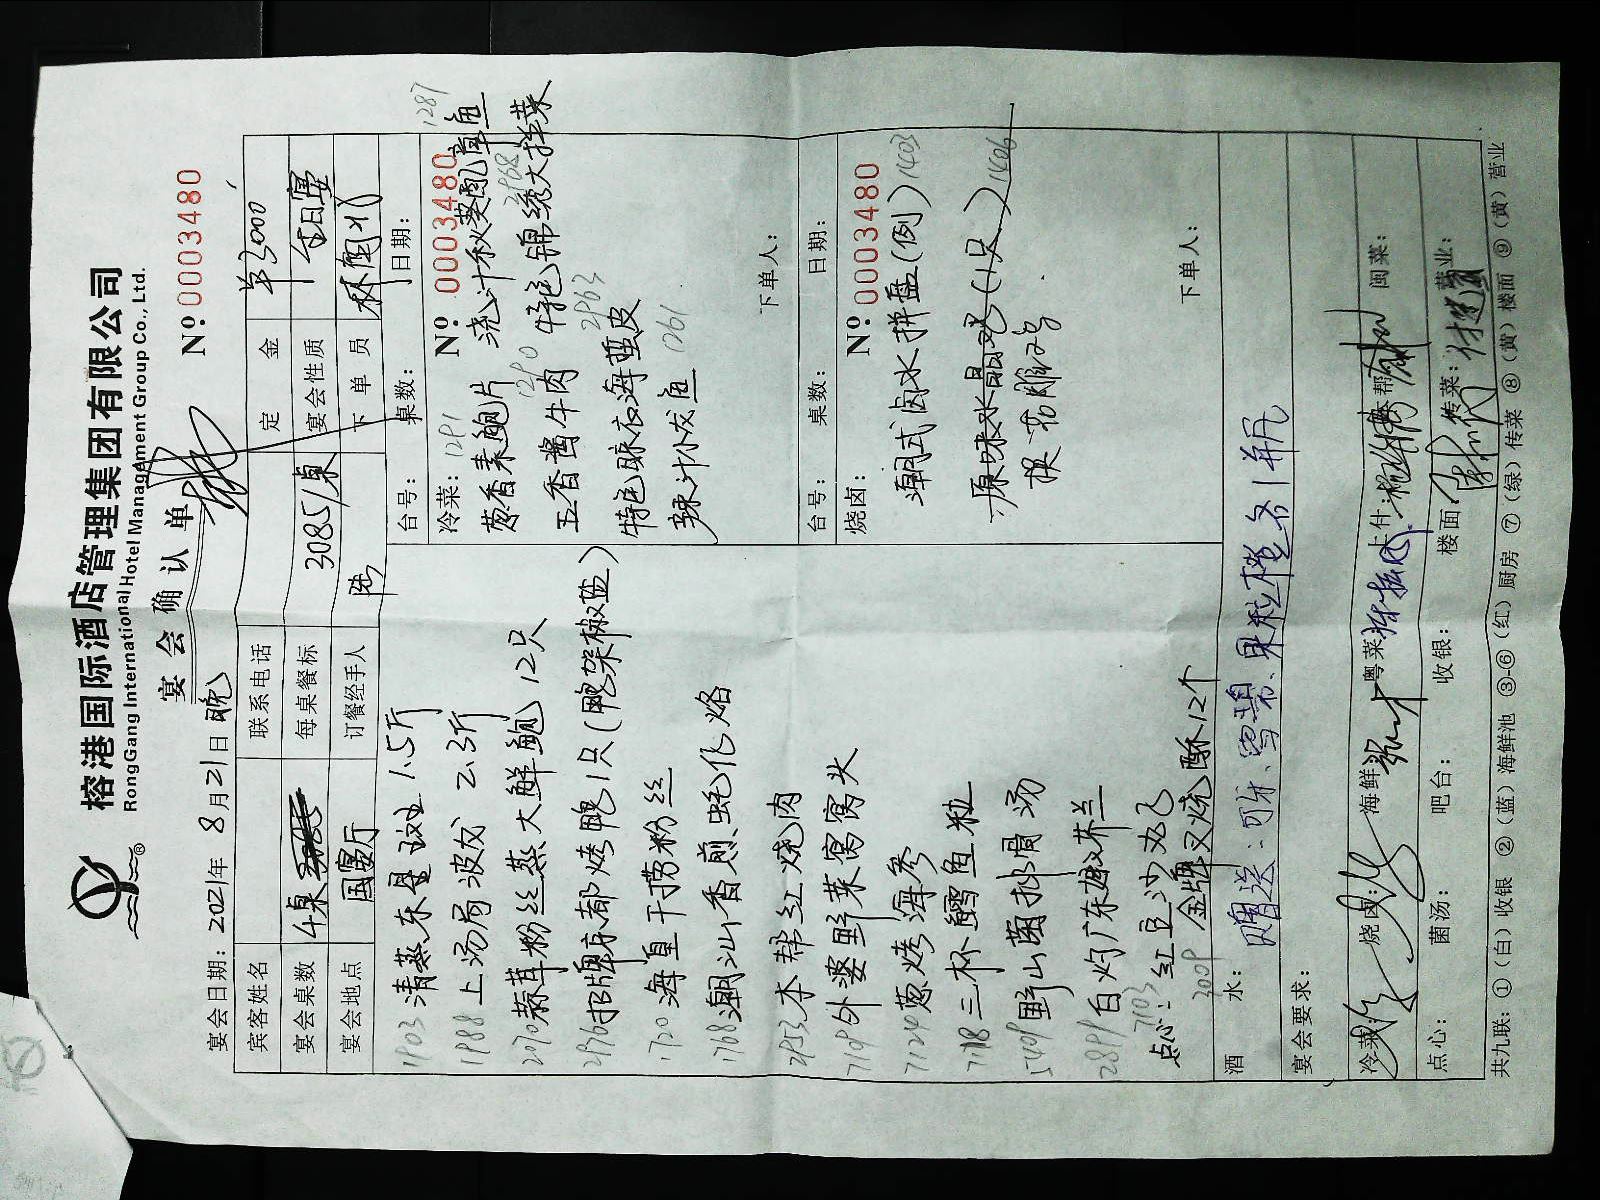 榕港国际酒店管理集团有限公司
RongGang International Hotel Management Group Co., Ltd.
®
宴会确认单
宴会日期：2021年 8月21日 晚
Nº 0003480
宾客姓名
联系电话
定金 单3000
宴会桌数 4桌
每桌餐标 3085/桌
宴会性质 生日宴
宴会地点 国宴厅
订餐经手人
下单员
1903 清蒸东星斑 1.5斤
1988 上汤焗波龙 2.3斤
2090 蒜茸粉丝蒸大鲜鲍12只
2976 招牌京都烤鸭1只(鸭架椒盐)
1720 海皇干捞粉丝
1768 潮汕香煎蚝仔烙
2953 本帮红烧肉
7109 外婆野菜窝窝头
7124 葱烤海参
7118 三杯鳕鱼粒
5409 野山菌排骨汤
2899 白灼广东芥兰
7103
点心：红豆沙丸子
3009 金牌叉烧酥12个
台号：
桌数：
日期：
冷菜：
Nº 0003480
1291
葱香素鲍片
浇汁秋葵章鱼
1287
五香酱牛肉
1290
特色锦绣大拌菜
2968
特色脆衣海蜇皮
2963
辣汁小龙鱼
1261
下单人：
台号：
桌数：
日期：
烧卤：
Nº 0003480
潮式卤水拼盘(例)
1403
原味水晶鸡(1只)
1406
下单人：
酒水：
赠送：可乐、雪碧、果粒橙各1瓶
宴会要求：
冷菜：
烧卤：
海鲜：
粤菜：
上什：
本帮：
闽菜：
点心：
菌汤：
吧台：
收银：
楼面：
传菜：
营业：
共九联：①(白)收银 ②(蓝)海鲜池 ③-⑥(红)厨房 ⑦(绿)传菜 ⑧(黄)楼面 ⑨(黄)营业